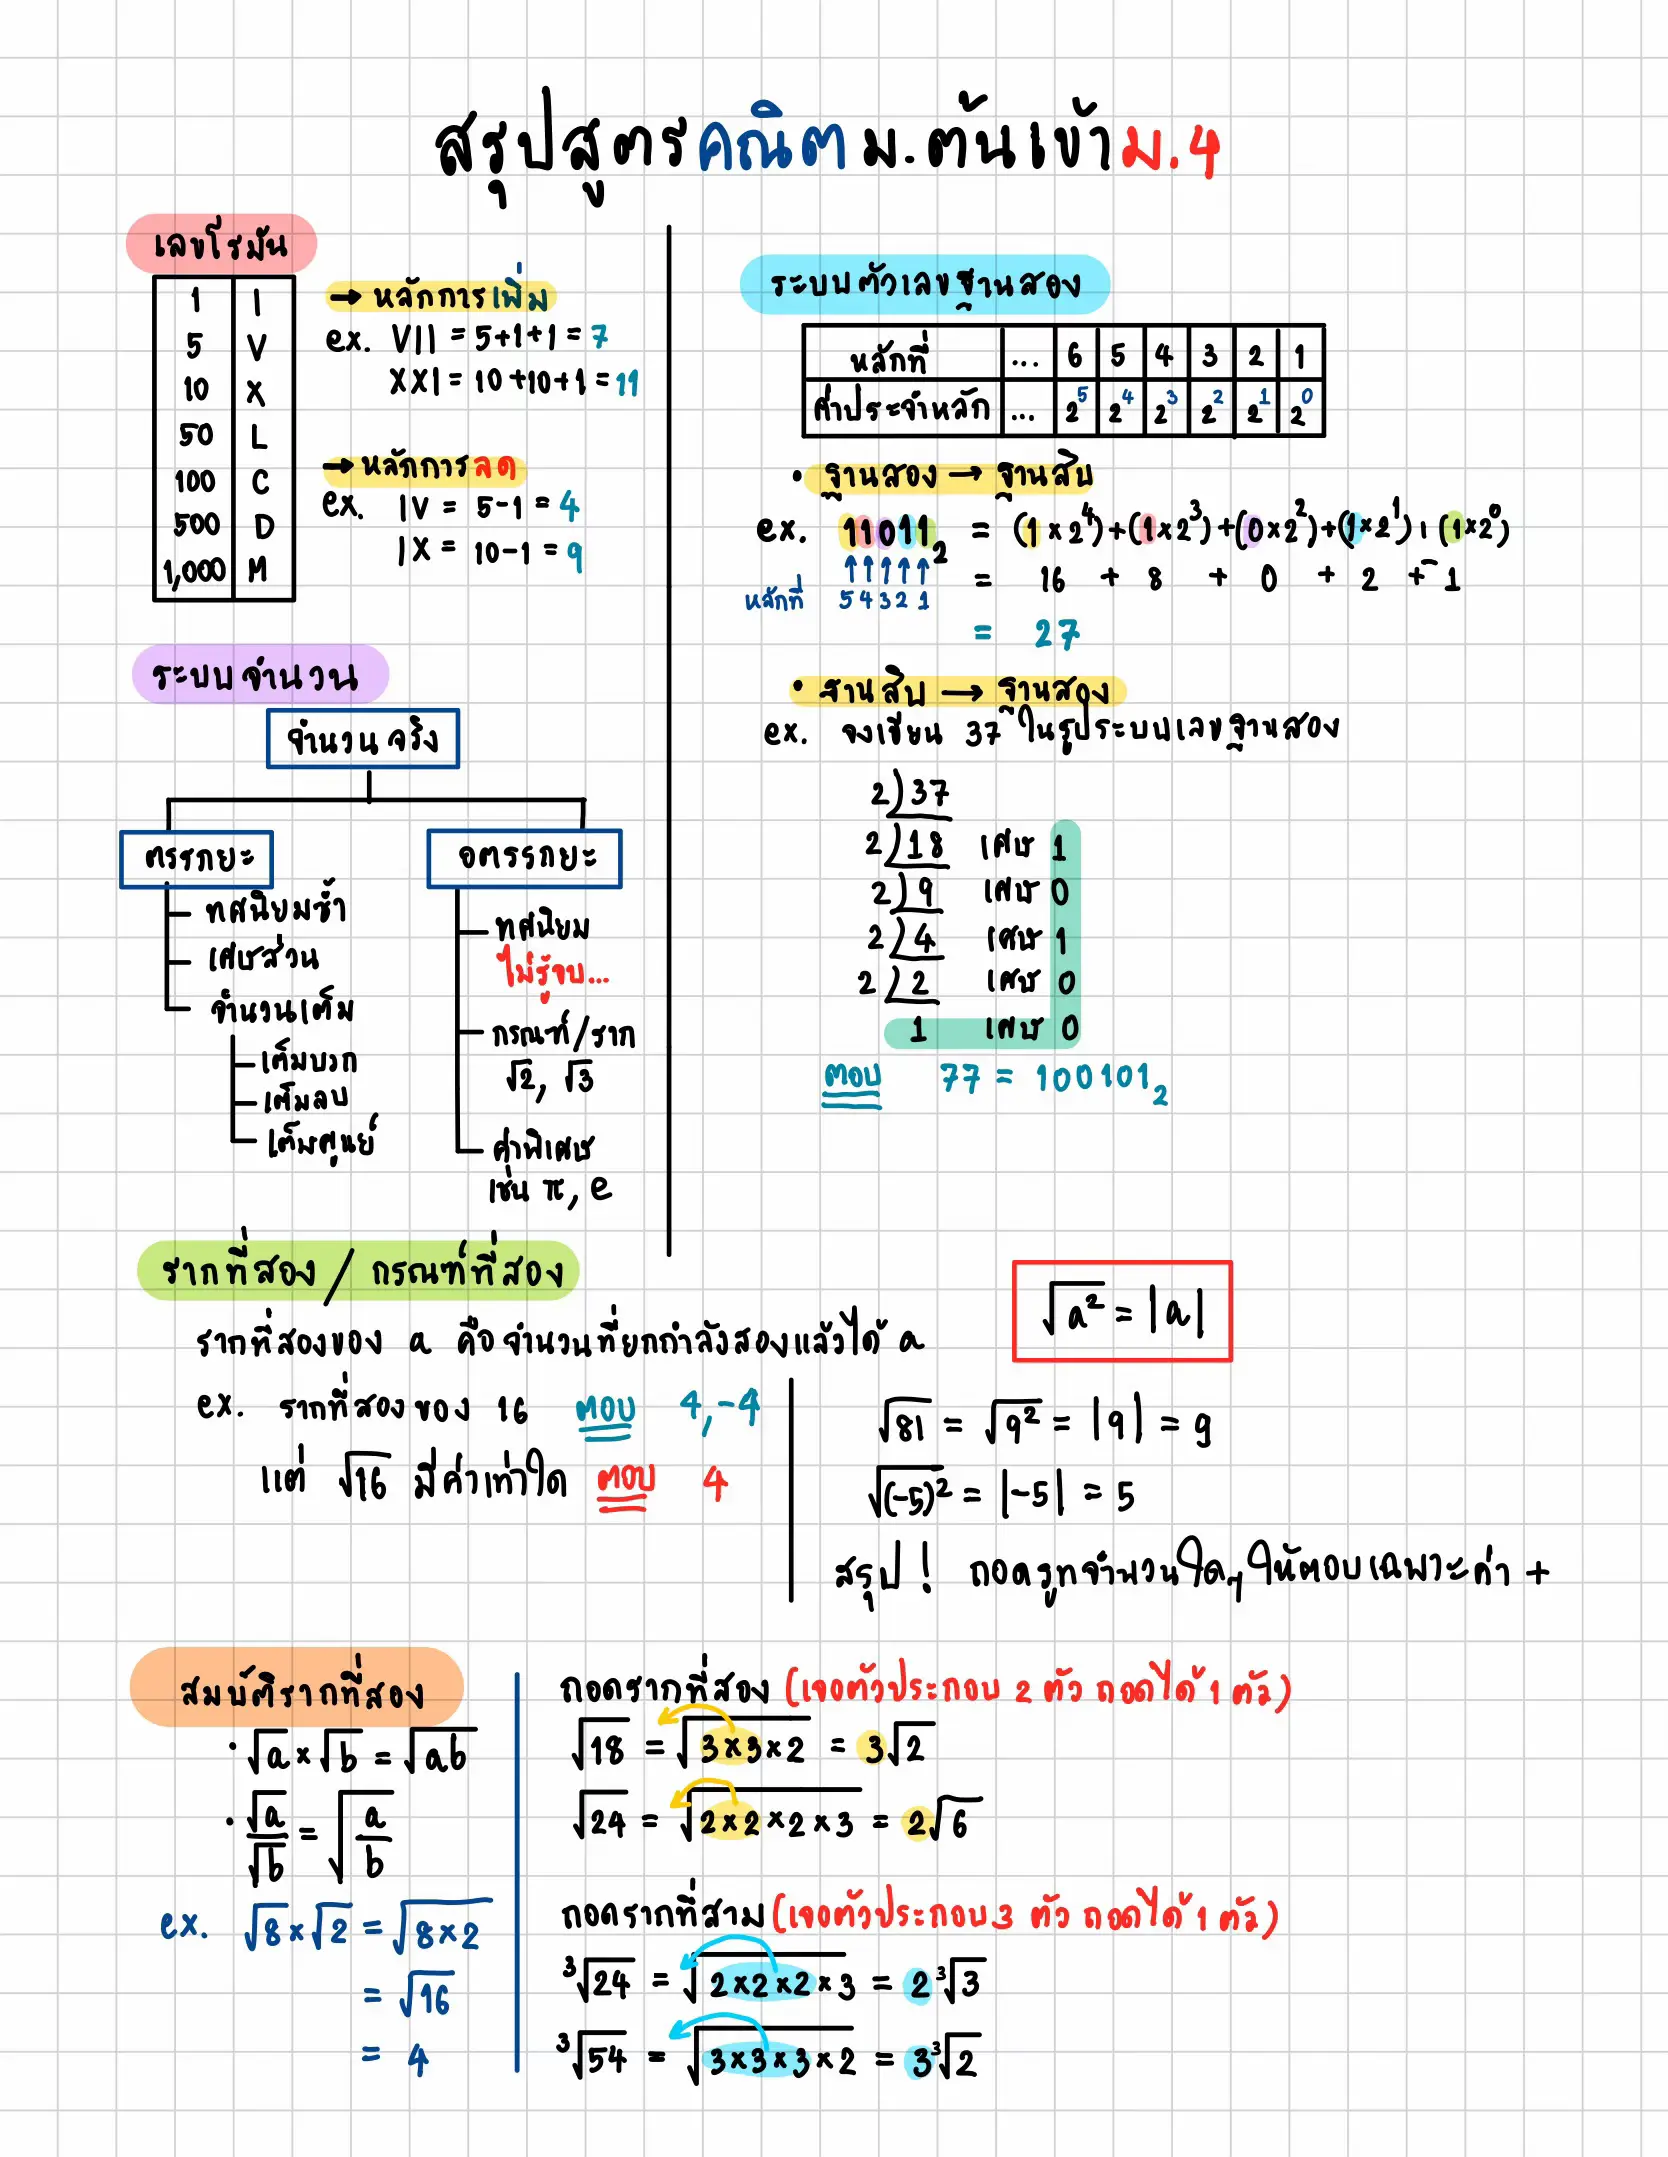 สรุปสูตรคณิตม.ต้นเข้าม.4
เลขโรมัน
1 I
5 V
10 X
50 L
100 C
500 D
1,000 M
→ หลักการเพิ่ม
ex. VII = 5+1+1 = 7
XXI = 10+10+1 = 11
→ หลักการลด
ex. IV = 5-1 = 4
IX = 10-1 = 9
ระบบจำนวน
จำนวนจริง
ตรรกยะ
ทศนิยมซ้ำ
เศษส่วน
จำนวนเต็ม
เต็มบวก
เต็มลบ
เต็มศูนย์
อตรรกยะ
ทศนิยม
ไม่รู้จบ...
กรณฑ์/ราก
√2, √3
ค่าพิเศษ
เช่น π, e
ระบบตัวเลขฐานสอง
หลักที่ ... 6 5 4 3 2 1
ค่าประจำหลัก ... 2⁵ 2⁴ 2³ 2² 2¹ 2⁰
• ฐานสอง → ฐานสิบ
ex. 11011₂ = (1×2⁴)+(1×2³)+(0×2²)+(1×2¹)+(1×2⁰)
↑↑↑↑↑
หลักที่ 5 4 3 2 1
= 16 + 8 + 0 + 2 + 1
= 27
• ฐานสิบ → ฐานสอง
ex. จงเขียน 37 ในรูประบบเลขฐานสอง
2)37
2)18 เศษ 1
2)9 เศษ 0
2)4 เศษ 1
2)2 เศษ 0
1 เศษ 0
ตอบ 77 = 100101₂
รากที่สอง / กรณฑ์ที่สอง
รากที่สองของ a คือ จำนวนที่ยกกำลังสองแล้วได้ a
ex. รากที่สองของ 16 ตอบ 4,-4
แต่ √16 มีค่าเท่าใด ตอบ 4
√a² = |a|
√81 = √9² = |9| = 9
√(-5)² = |-5| = 5
สรุป! ถอดรูทจำนวนใดๆ ให้ตอบเฉพาะค่า +
สมบัติรากที่สอง
• √a × √b = √ab
• √a/√b = √(a/b)
ex. √8 × √2 = √8×2
= √16
= 4
ถอดรากที่สอง (เจอตัวประกอบ 2 ตัว ถอดได้ 1 ตัว)
√18 = √3×3×2 = 3√2
√24 = √2×2×2×3 = 2√6
ถอดรากที่สาม (เจอตัวประกอบ 3 ตัว ถอดได้ 1 ตัว)
³√24 = √2×2×2×3 = 2³√3
³√54 = √3×3×3×2 = 3³√2